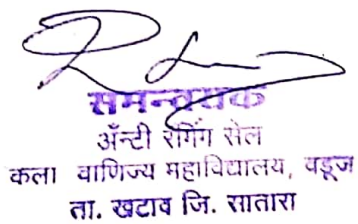 समन्वयक
अँन्टी रॅगिंग सेल
कला वाणिज्य महाविद्यालय, वडूज
ता. खटाव जि. सातारा